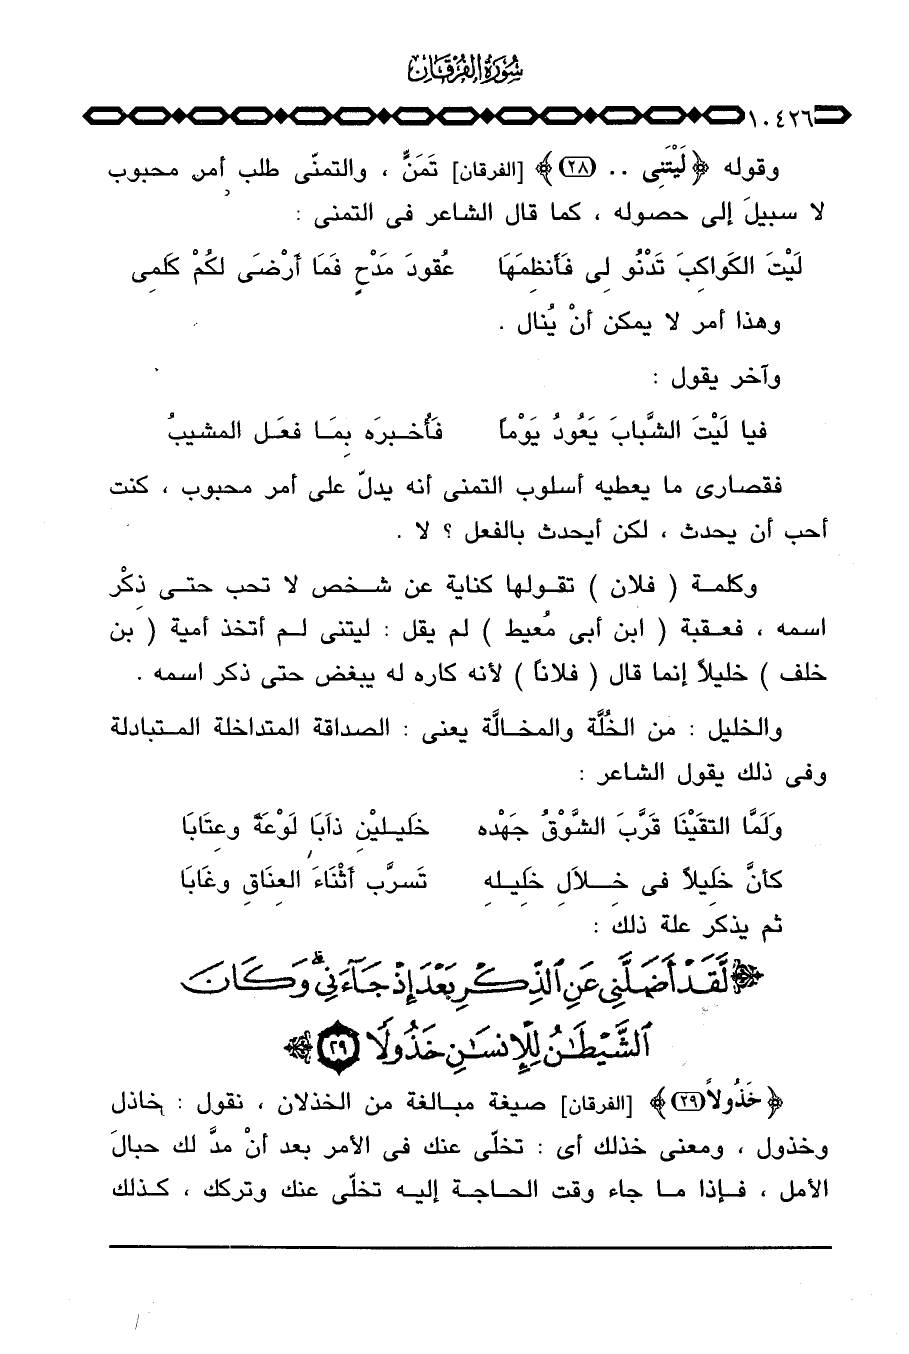 سُورَةُ الفُرْقَان
١٠٤٢٦
وقوله ﴿ لَيْتَنِى .. (٢٨) ﴾ [الفرقان] تَمَنٍّ ، والتمنّى طلب أمرٍ محبوب
لا سبيلَ إلى حصوله ، كما قال الشاعر فى التمنى :
لَيْتَ الكَواكِبَ تَدْنُو لِى فَأنظِمَهَا عُقودَ مَدْحٍ فَمَا أَرْضَى لكُمْ كَلِمى
وهذا أمر لا يمكن أنْ يُنال .
وآخر يقول :
فيا لَيْتَ الشَّبابَ يَعُودُ يَوْماً فَأُخـبِرَه بِمَـا فعَـل المشيبُ
فقصارى ما يعطيه أسلوب التمنى أنه يدلّ على أمر محبوب ، كنت
أحب أن يحدث ، لكن أيحدث بالفعل ؟ لا .
وكلمـة ( فلان ) تقـولها كناية عن شـخص لا تحب حتـى ذِكْر
اسمه ، فعـقبة ( ابن أبى مُعيط ) لم يقل : ليتنى لـم أتخذ أمية ( بن
خلف ) خليلاً إنما قال ( فلاناً ) لأنه كاره له يبغض حتى ذكر اسمه .
والخليل : من الخُلَّة والمخـالَّة يعنى : الصداقة المتداخلة المـتبادلة
وفى ذلك يقول الشاعر :
ولَمَّا التقَيْنَا قَرَّبَ الشَّوْقُ جَهْدَه خَلِيـليْن ذَابَا لَوْعَةً وعِتَابَا
كأنَّ خَلِيلاً فى خِـلاَلِ خَلِيـلِه تَسرَّب أثْنَاءَ العِنَاقِ وغَابَا
ثم يذكر علة ذلك :
﴿ لَّقَدْ أَضَلَّنِى عَنِ ٱلذِّكْرِ بَعْدَ إِذْ جَآءَنِى ۗ وَكَانَ
ٱلشَّيْطَـٰنُ لِلْإِنسَـٰنِ خَذُولًا ٢٩ ﴾
﴿ خَذُولاً (٢٩) ﴾ [الفرقان] صيغة مبـالغة من الخذلان ، نقول : خاذل
وخذول ، ومعنى خذلك أى : تخلّى عنك فى الأمر بعد أنْ مدَّ لك حبالَ
الأمل ، فـإذا مـا جاء وقت الحـاجـة إليـه تخلّى عنك وتركك ، كـذلك